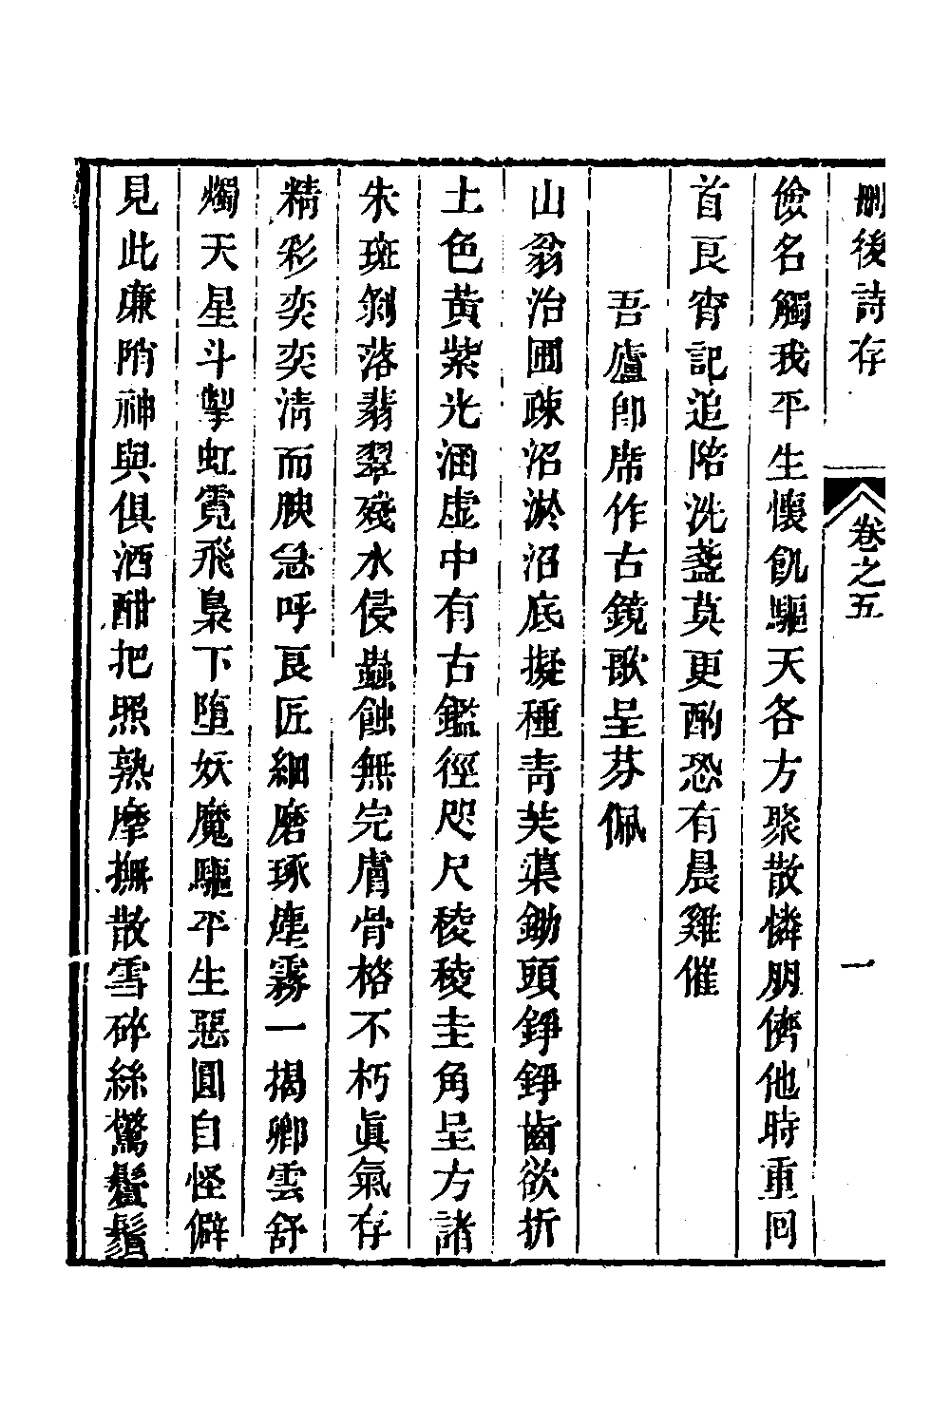 刪後詩存
卷之五
一
儉名觸我平生懷飢驅天各方聚散憐朋儕他時重回
首良宵記追陪洗盞莫更酌恐有晨雞催
吾廬卽席作古鏡歌呈芬佩
山翁治圃疎沼淤沼底擬種靑芙蕖鋤頭錚錚齒欲折
土色黃紫光涵虛中有古鑑徑咫尺稜稜圭角呈方諸
朱斑剝落翡翠殘水侵蟲蝕無完膚骨格不朽眞氣存
精彩奕奕淸而腴急呼良匠細磨琢塵霧一揭卿雲舒
燭天星斗掣虹霓飛梟下墮妖魔驅平生惡圓自怪僻
見此廉隅神與俱酒酣把照熟摩撫散雪碎絲驚鬢鬚